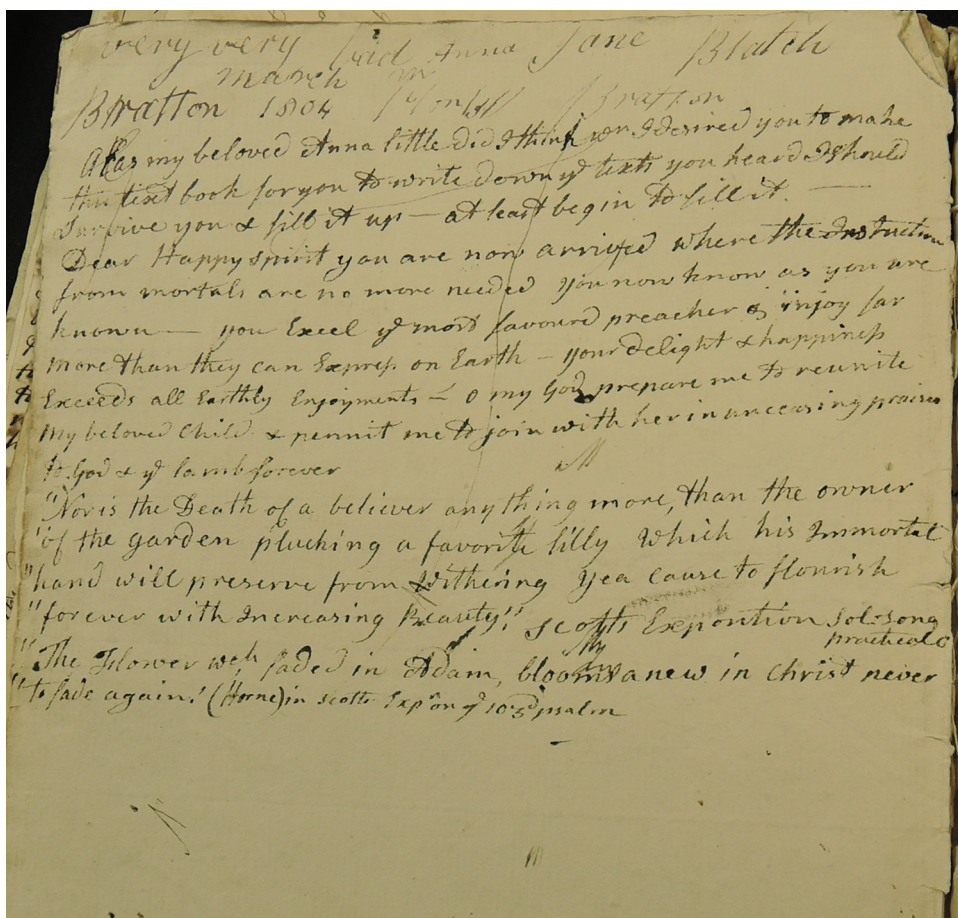 very very Anna Jane Blatch
march
Bratton 1804 Bratton
Alas my beloved Anna little did I think wn I desired you to make
this text book for you to write down ye texts you heard I should
survive you & fill it up — at least begin to fill it. —
Dear Happy spirit you are now arrived where the Instruction
from mortals are no more needed you now know as you are
known — you Excel ye most favoured preacher & injoy far
more than they can Express on Earth — your delight & happiness
Exceeds all Earthly Enjoyments — O my God prepare me to reunite
my beloved Child & permit me to join with her in unceasing praises
to God & ye lamb forever
"Nor is the Death of a believer any thing more, than the owner
"of the garden plucking a favorite lilly which his Immortal
"hand will preserve from withering yea cause to flourish
"forever with Increasing Beauty!" Scotts Exposition Sol. Song
practical o
"The Flower wch faded in Adam, blooms anew in Christ never
"to fade again." (Horne) in Scotts Expn on ye 103d psalm